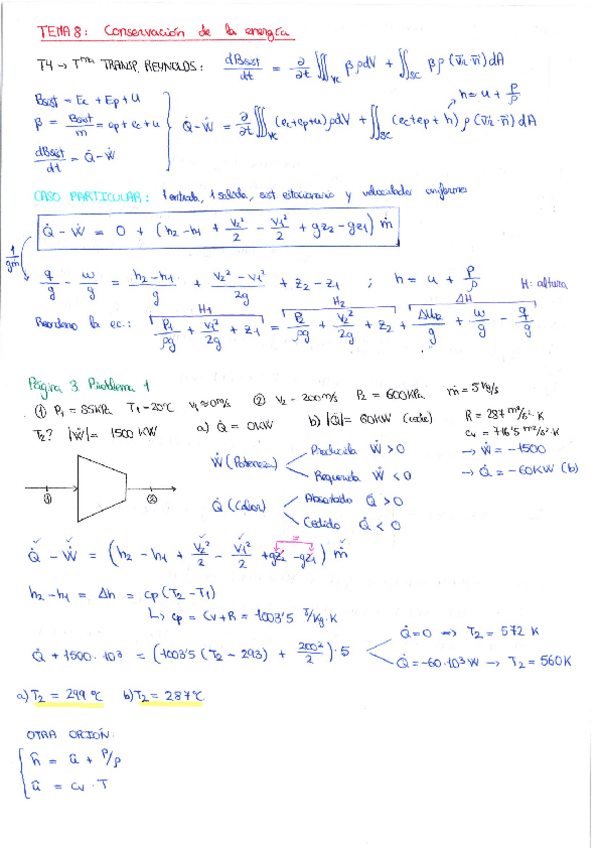 TEMA 8: Conservación de la energía
T4 → Tma TRANSP. REYNOLDS: dBsist/dt = ∂/∂t ∭vc βρdV + ∬sc βρ (v̄r·n̄) dA
h = u + P/ρ
Bsist = Ec + Ep + U
β = Bsist/m = ep + ec + u
Q̇ - Ẇ = ∂/∂t ∭vc (ec+ep+u)ρdV + ∬sc (ec+ep+h) ρ (v̄r·n̄) dA
dBsist/dt = Q̇ - Ẇ
CASO PARTICULAR: 1 entrada, 1 salida, sist estacionario y velocidades uniformes
Q̇ - Ẇ = 0 + (h2 - h1 + v2²/2 - v1²/2 + gz2 - gz1) ṁ
1/gṁ
q/g - w/g = h2-h1/g + v2²-v1²/2g + z2 - z1 ; h = u + P/ρ H: altura
H1 H2 ΔH
Reordeno la ec.: P1/ρg + v1²/2g + z1 = P2/ρg + v2²/2g + z2 + Δu/g + w/g - q/g
Página 3. Problema 1
① P1 = 85KPa T1 = 20°C v1 ≈ 0 m/s ② v2 = 200 m/s P2 = 600KPa ṁ = 5 Kg/s
T2? |Ẇ| = 1500 KW a) Q̇ = 0KW b) |Q̇| = 60KW (cede)
R = 287 m²/s²·K
cv = 716'5 m²/s²·K
→ Ẇ = -1500
→ Q̇ = -60KW (b)
Ẇ (Potencia) Producida Ẇ > 0
Requerida Ẇ < 0
Q̇ (Calor) Absorbido Q̇ > 0
Cedido Q̇ < 0
① ②
Q̇ - Ẇ = (h2 - h1 + v2²/2 - v1²/2 + gz2 - gz1) ṁ
h2 - h1 = Δh = cp (T2 - T1)
↳ cp = cv + R = 1003'5 J/Kg·K
Q̇ + 1500·10³ = (1003'5 (T2 - 293) + 200²/2)·5
Q̇ = 0 → T2 = 572 K
Q̇ = -60·10³ W → T2 = 560K
a) T2 = 299 °C b) T2 = 287 °C
OTRA OPCIÓN:
ĥ = û + P/ρ
û = cv · T